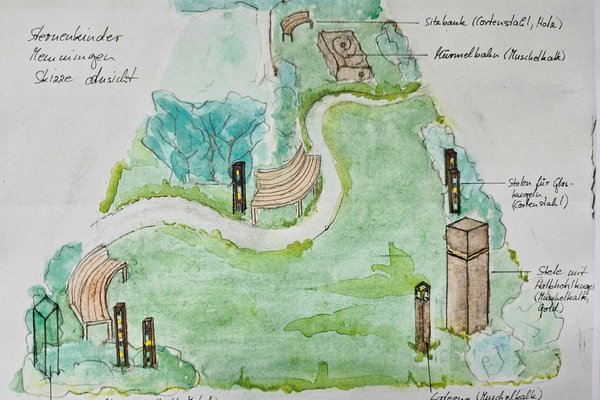 Sternenkinder
Memmingen
Skizze Ansicht
Sitzbank (Cortenstahl, Holz)
Murmelbahn (Muschelkalk)
Stelen für Glas-
kugeln
(Cortenstahl)
Stele mit
Halbhohlkugel
(Muschelkalk,
Gold)
Laterne (Muschelkalk)